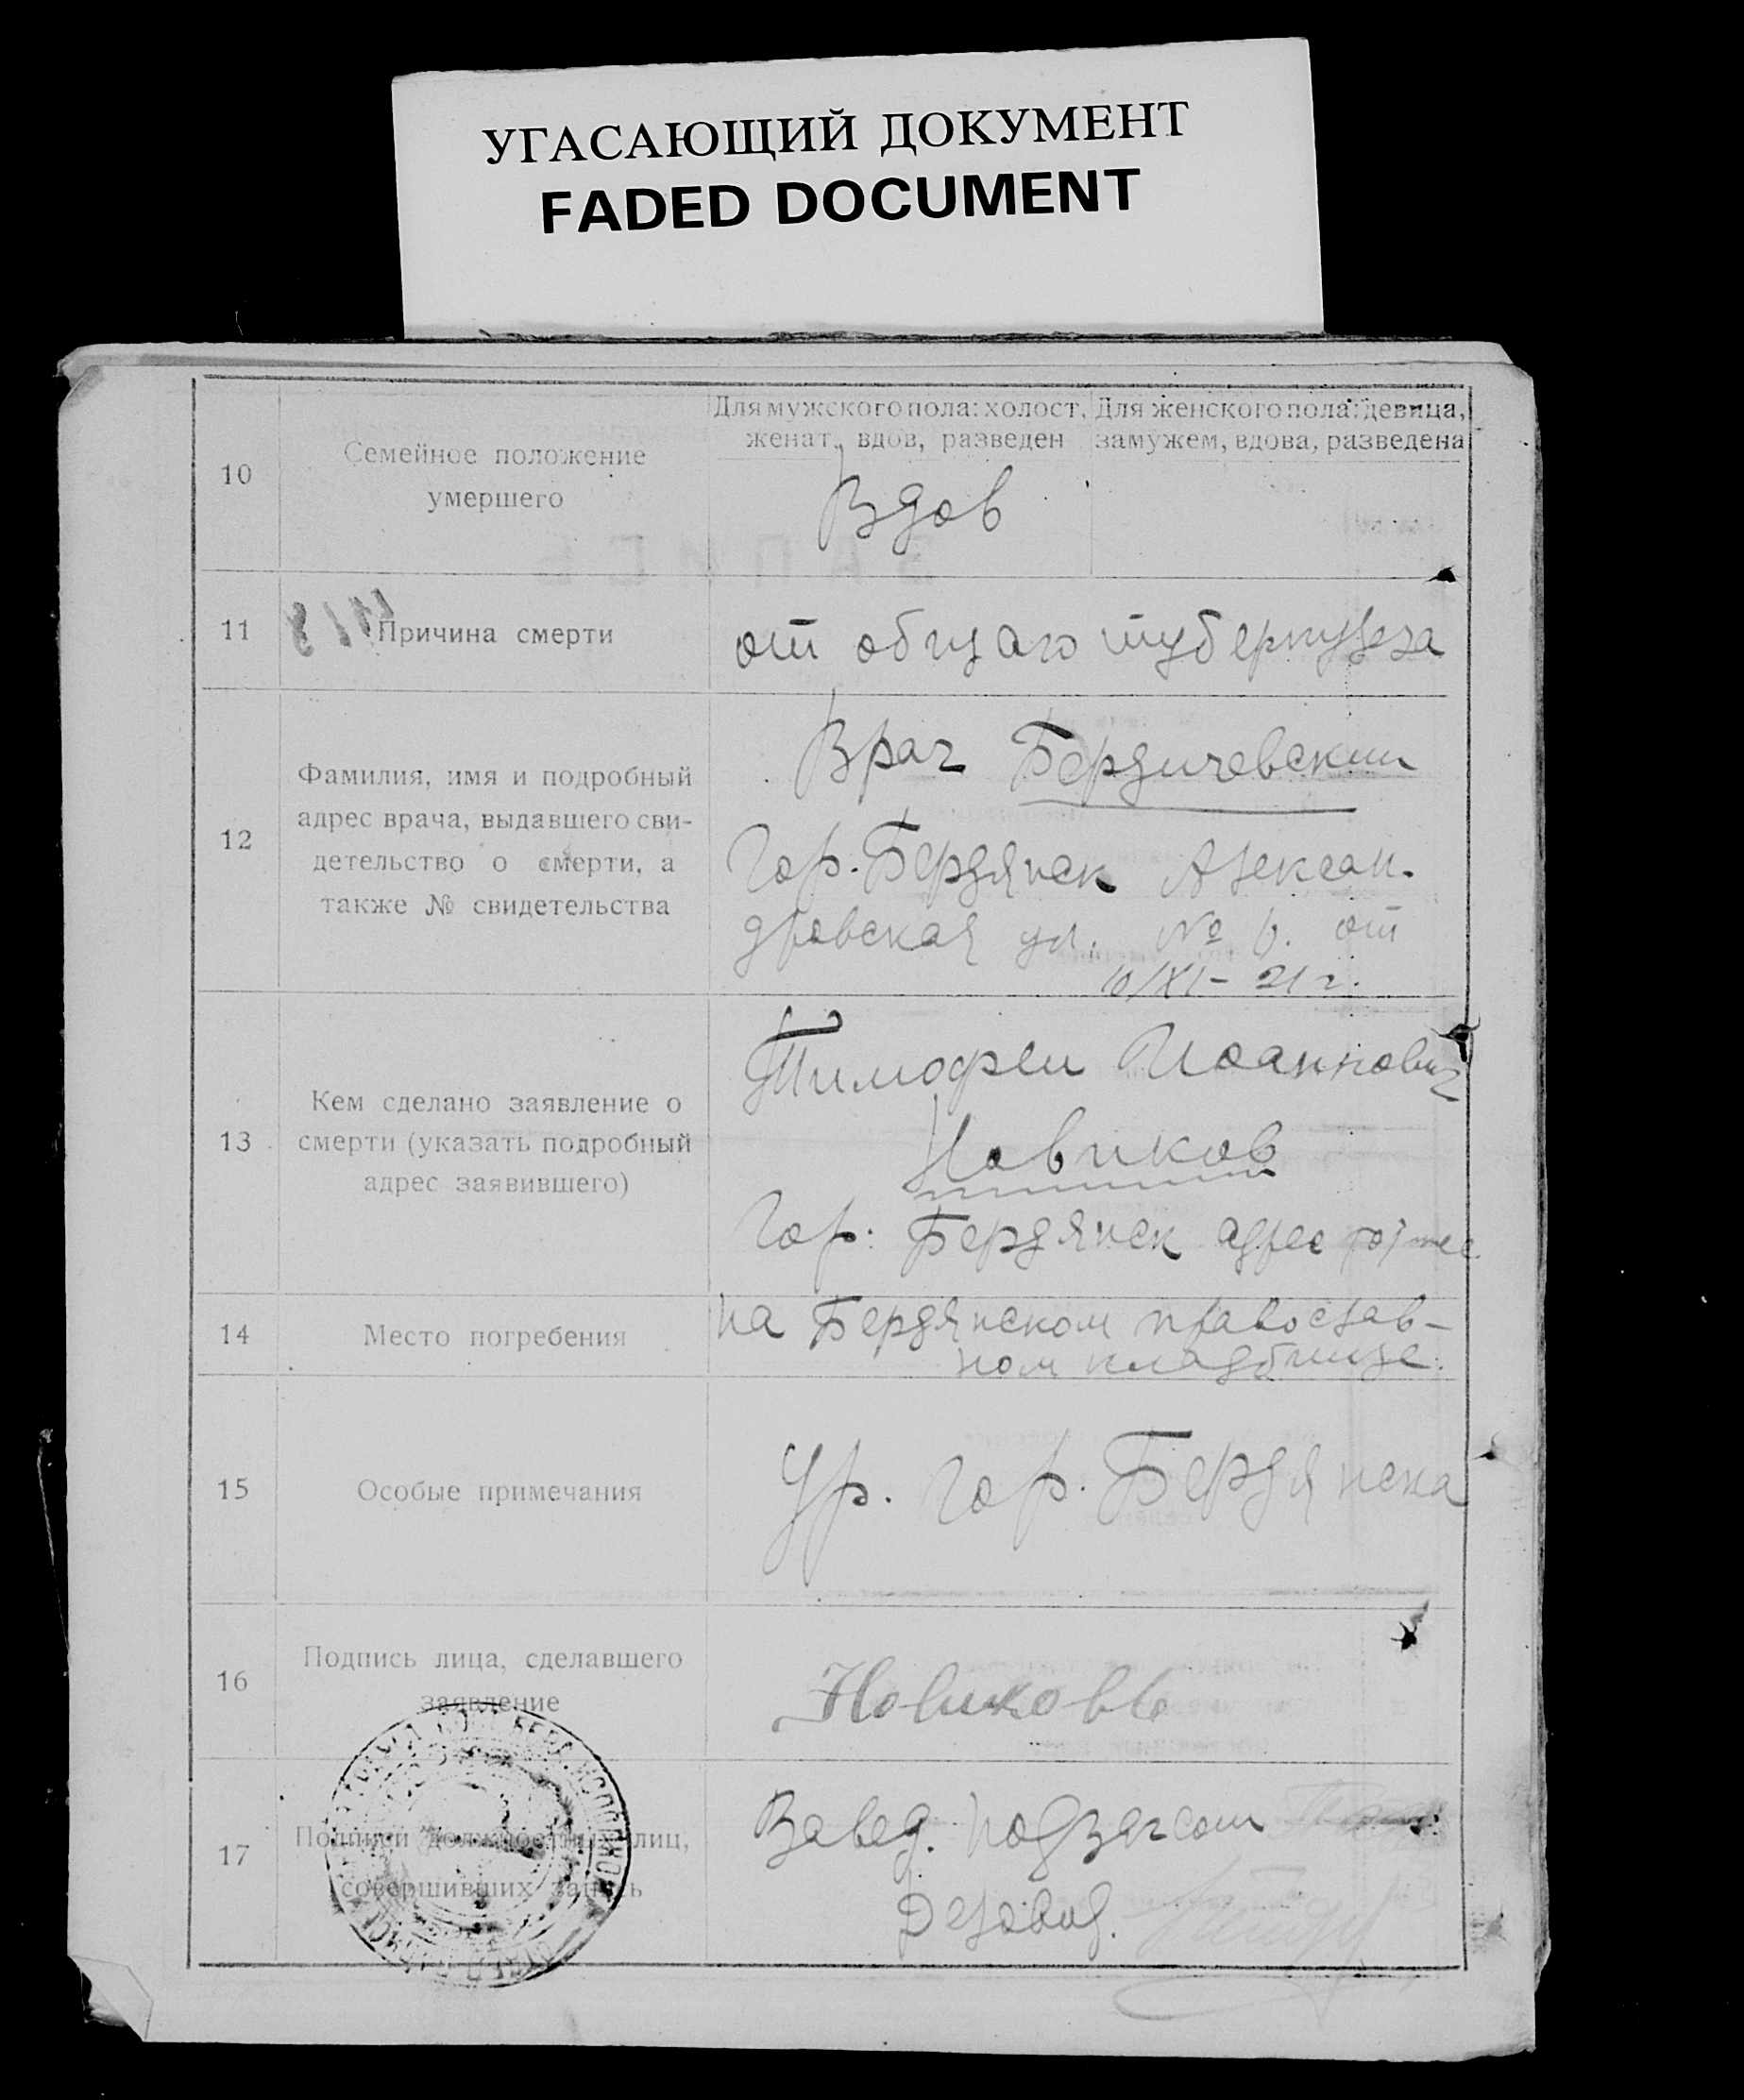 УГАСАЮЩИЙ ДОКУМЕНТ
FADED DOCUMENT
10
Семейное положение
умершего
Для мужского пола: холост,
женат, вдов, разведен
Для женского пола: девица,
замужем, вдова, разведена
Вдов
11
Причина смерти
от общаго туберкулеза
12
Фамилия, имя и подробный
адрес врача, выдавшего сви-
детельство о смерти, а
также № свидетельства
Врач Бердичевский
Гор. Бердянск Алексан-
дровская ул. № 6. от
10/XI - 21 г.
13
Кем сделано заявление о
смерти (указать подробный
адрес заявившего)
Тимофей Иоаннович
Новиков
Гор. Бердянск адрес тот же
14
Место погребения
на Бердянском православ-
ном кладбище.
15
Особые примечания
Ур. гор. Бердянска
16
Подпись лица, сделавшего
заявление
Новиковъ
17
Подписи должностных лиц,
совершивших запись
Завед. подзагсом
Деловод.